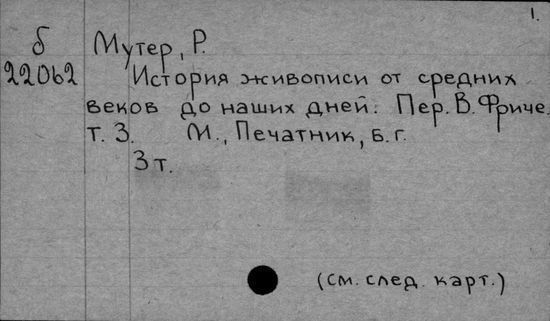 1.
б
22062
Мутер, Р.
История живописи от средних
веков до наших дней. Пер. В. Фриче.
т. 3. М., Печатник, б. г.
3 т.
(см. след. карт.)